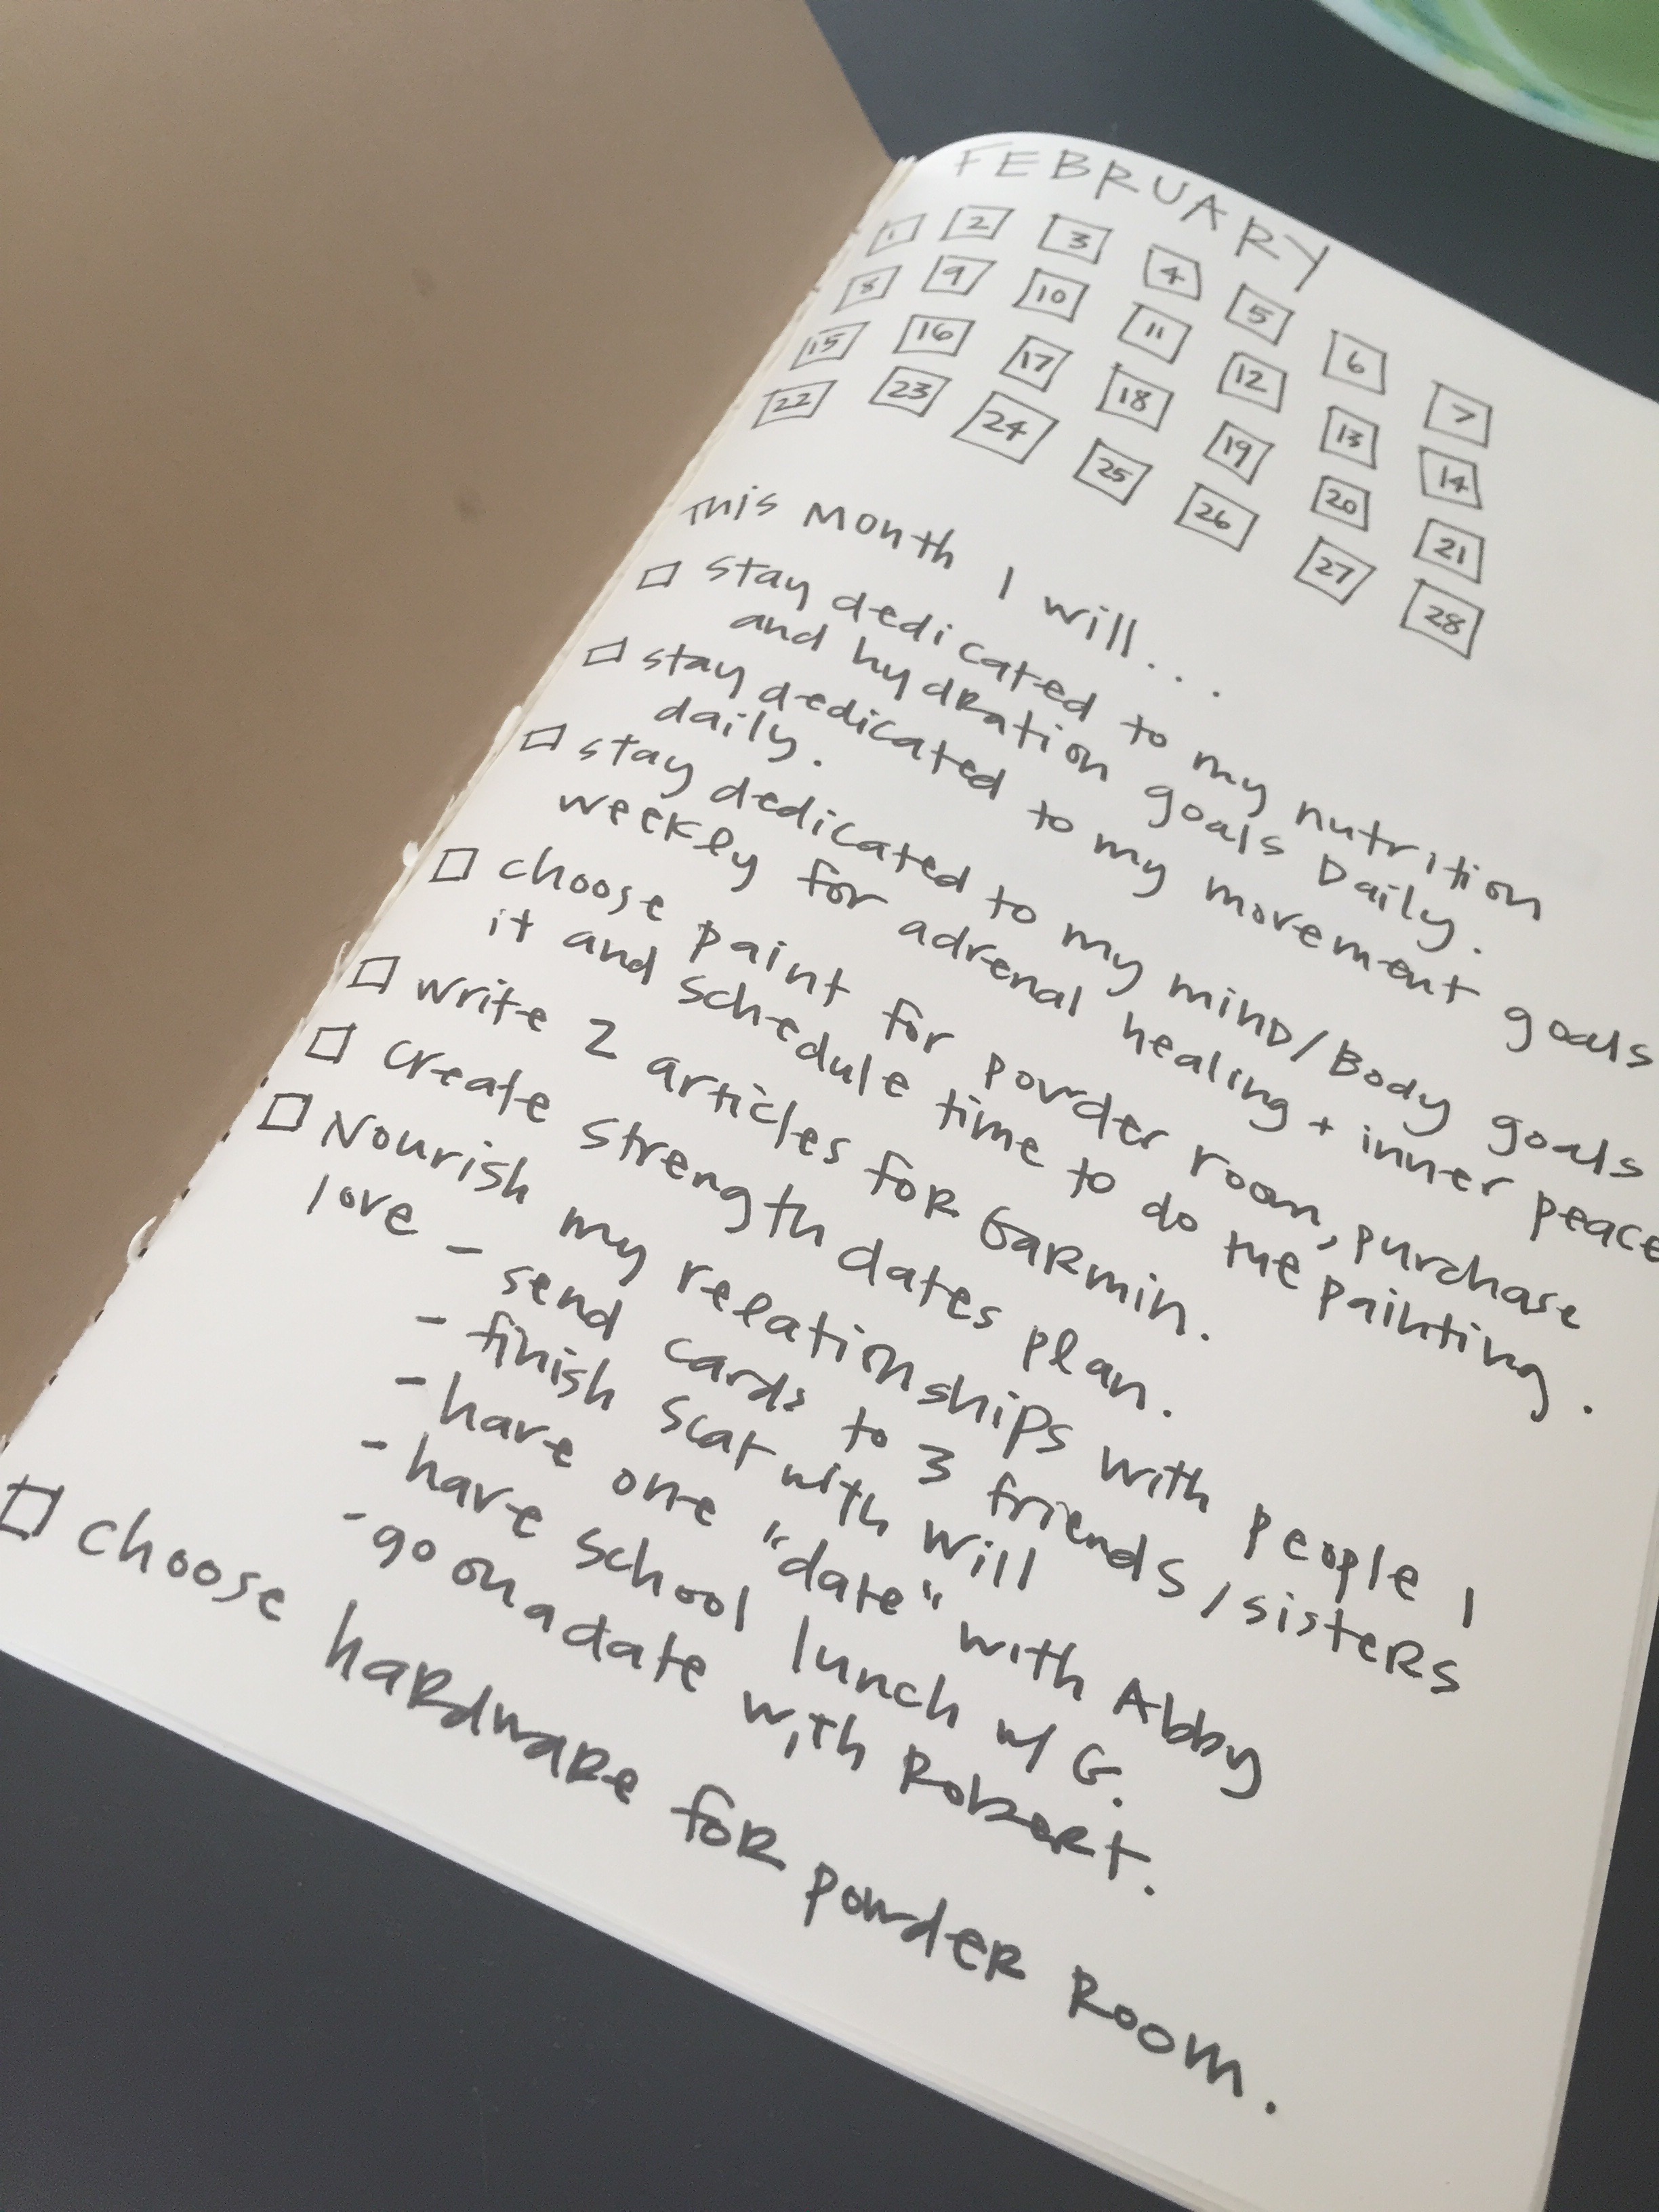 FEBRUARY
1 2 3 4 5 6 7
8 9 10 11 12 13 14
15 16 17 18 19 20 21
22 23 24 25 26 27 28
This Month I will...
stay dedicated to my nutrition
and hydration goals Daily.
stay dedicated to my movement goals
daily.
stay dedicated to my mind/Body goals
weekly for adrenal healing + inner peace
choose paint for powder room, purchase
it and schedule time to do the painting.
write 2 articles for Garmin.
create strength dates plan.
Nourish my relationships with people I
love - send cards to 3 friends/sisters
- finish scat with will
- have one "date" with Abby
- have school lunch w/ G.
- go on a date with Robert.
choose hardware for powder room.